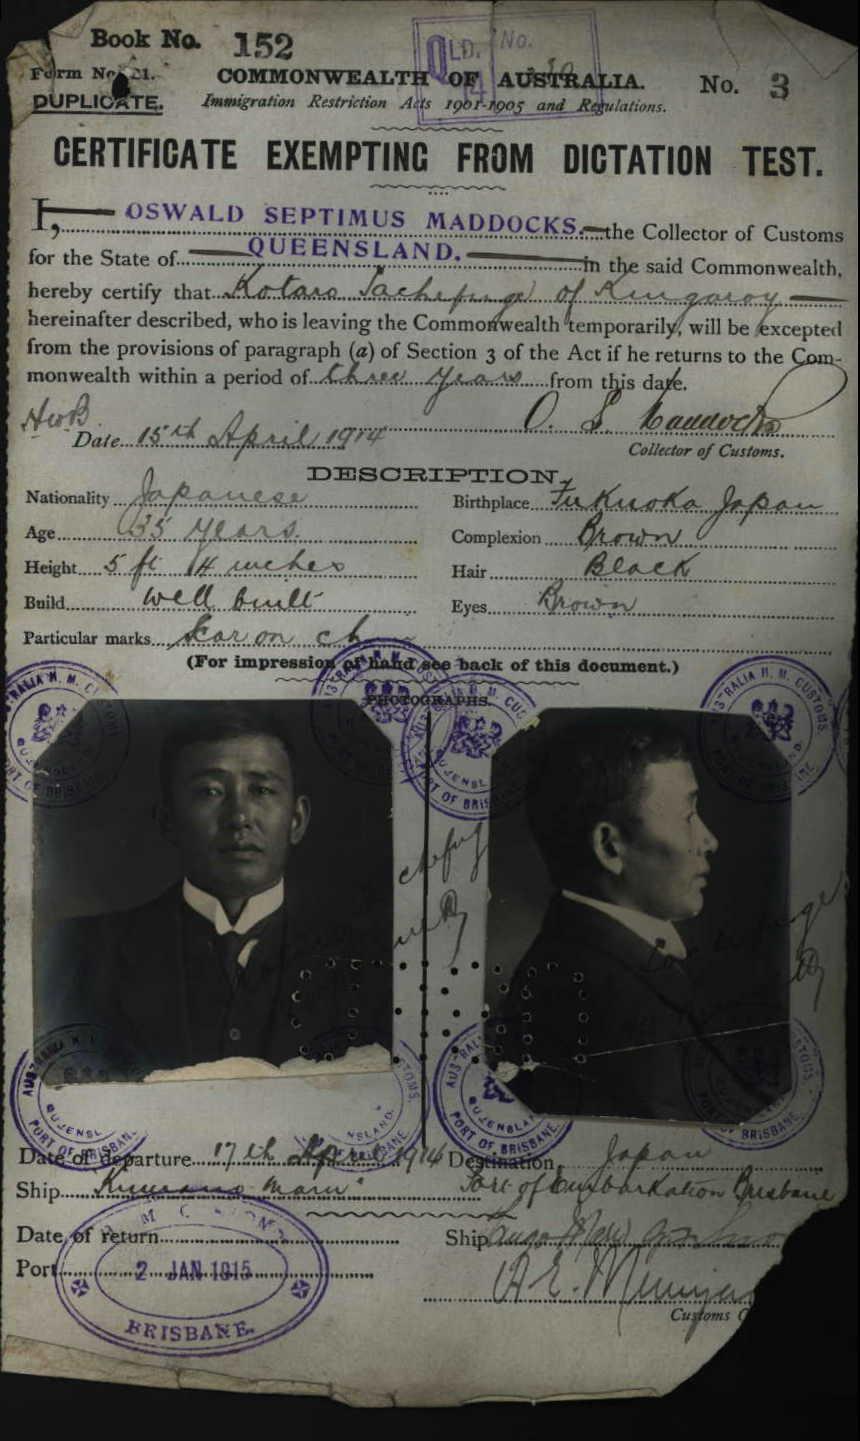 Book No. 152
QLD. No.
Form No. 21.
COMMONWEALTH OF AUSTRALIA.
No. 3
DUPLICATE.
Immigration Restriction Acts 1901-1905 and Regulations.
CERTIFICATE EXEMPTING FROM DICTATION TEST.
I, OSWALD SEPTIMUS MADDOCKS. the Collector of Customs
for the State of QUEENSLAND. in the said Commonwealth,
hereby certify that Kotaro of Kingaroy
hereinafter described, who is leaving the Commonwealth temporarily, will be excepted
from the provisions of paragraph (a) of Section 3 of the Act if he returns to the Com-
monwealth within a period of three years from this date.
HWB
O. S. Maddocks
Date 15th April 1914
Collector of Customs.
DESCRIPTION.
Nationality Japanese Birthplace Fukuoka Japan
Age 35 years. Complexion Brown
Height 5 ft 4 inches Hair Black
Build Well built Eyes Brown
Particular marks Scar on
(For impression of hand see back of this document.)
PHOTOGRAPHS.
AUSTRALIA H. M. CUSTOMS.
QUEENSLAND.
PORT OF BRISBANE
Date of departure 17th April 1914 Destination Japan
Ship "Kumano Maru" Port of Embarkation Brisbane
Date of return Ship
Port
2 JAN 1915
BRISBANE.
Customs